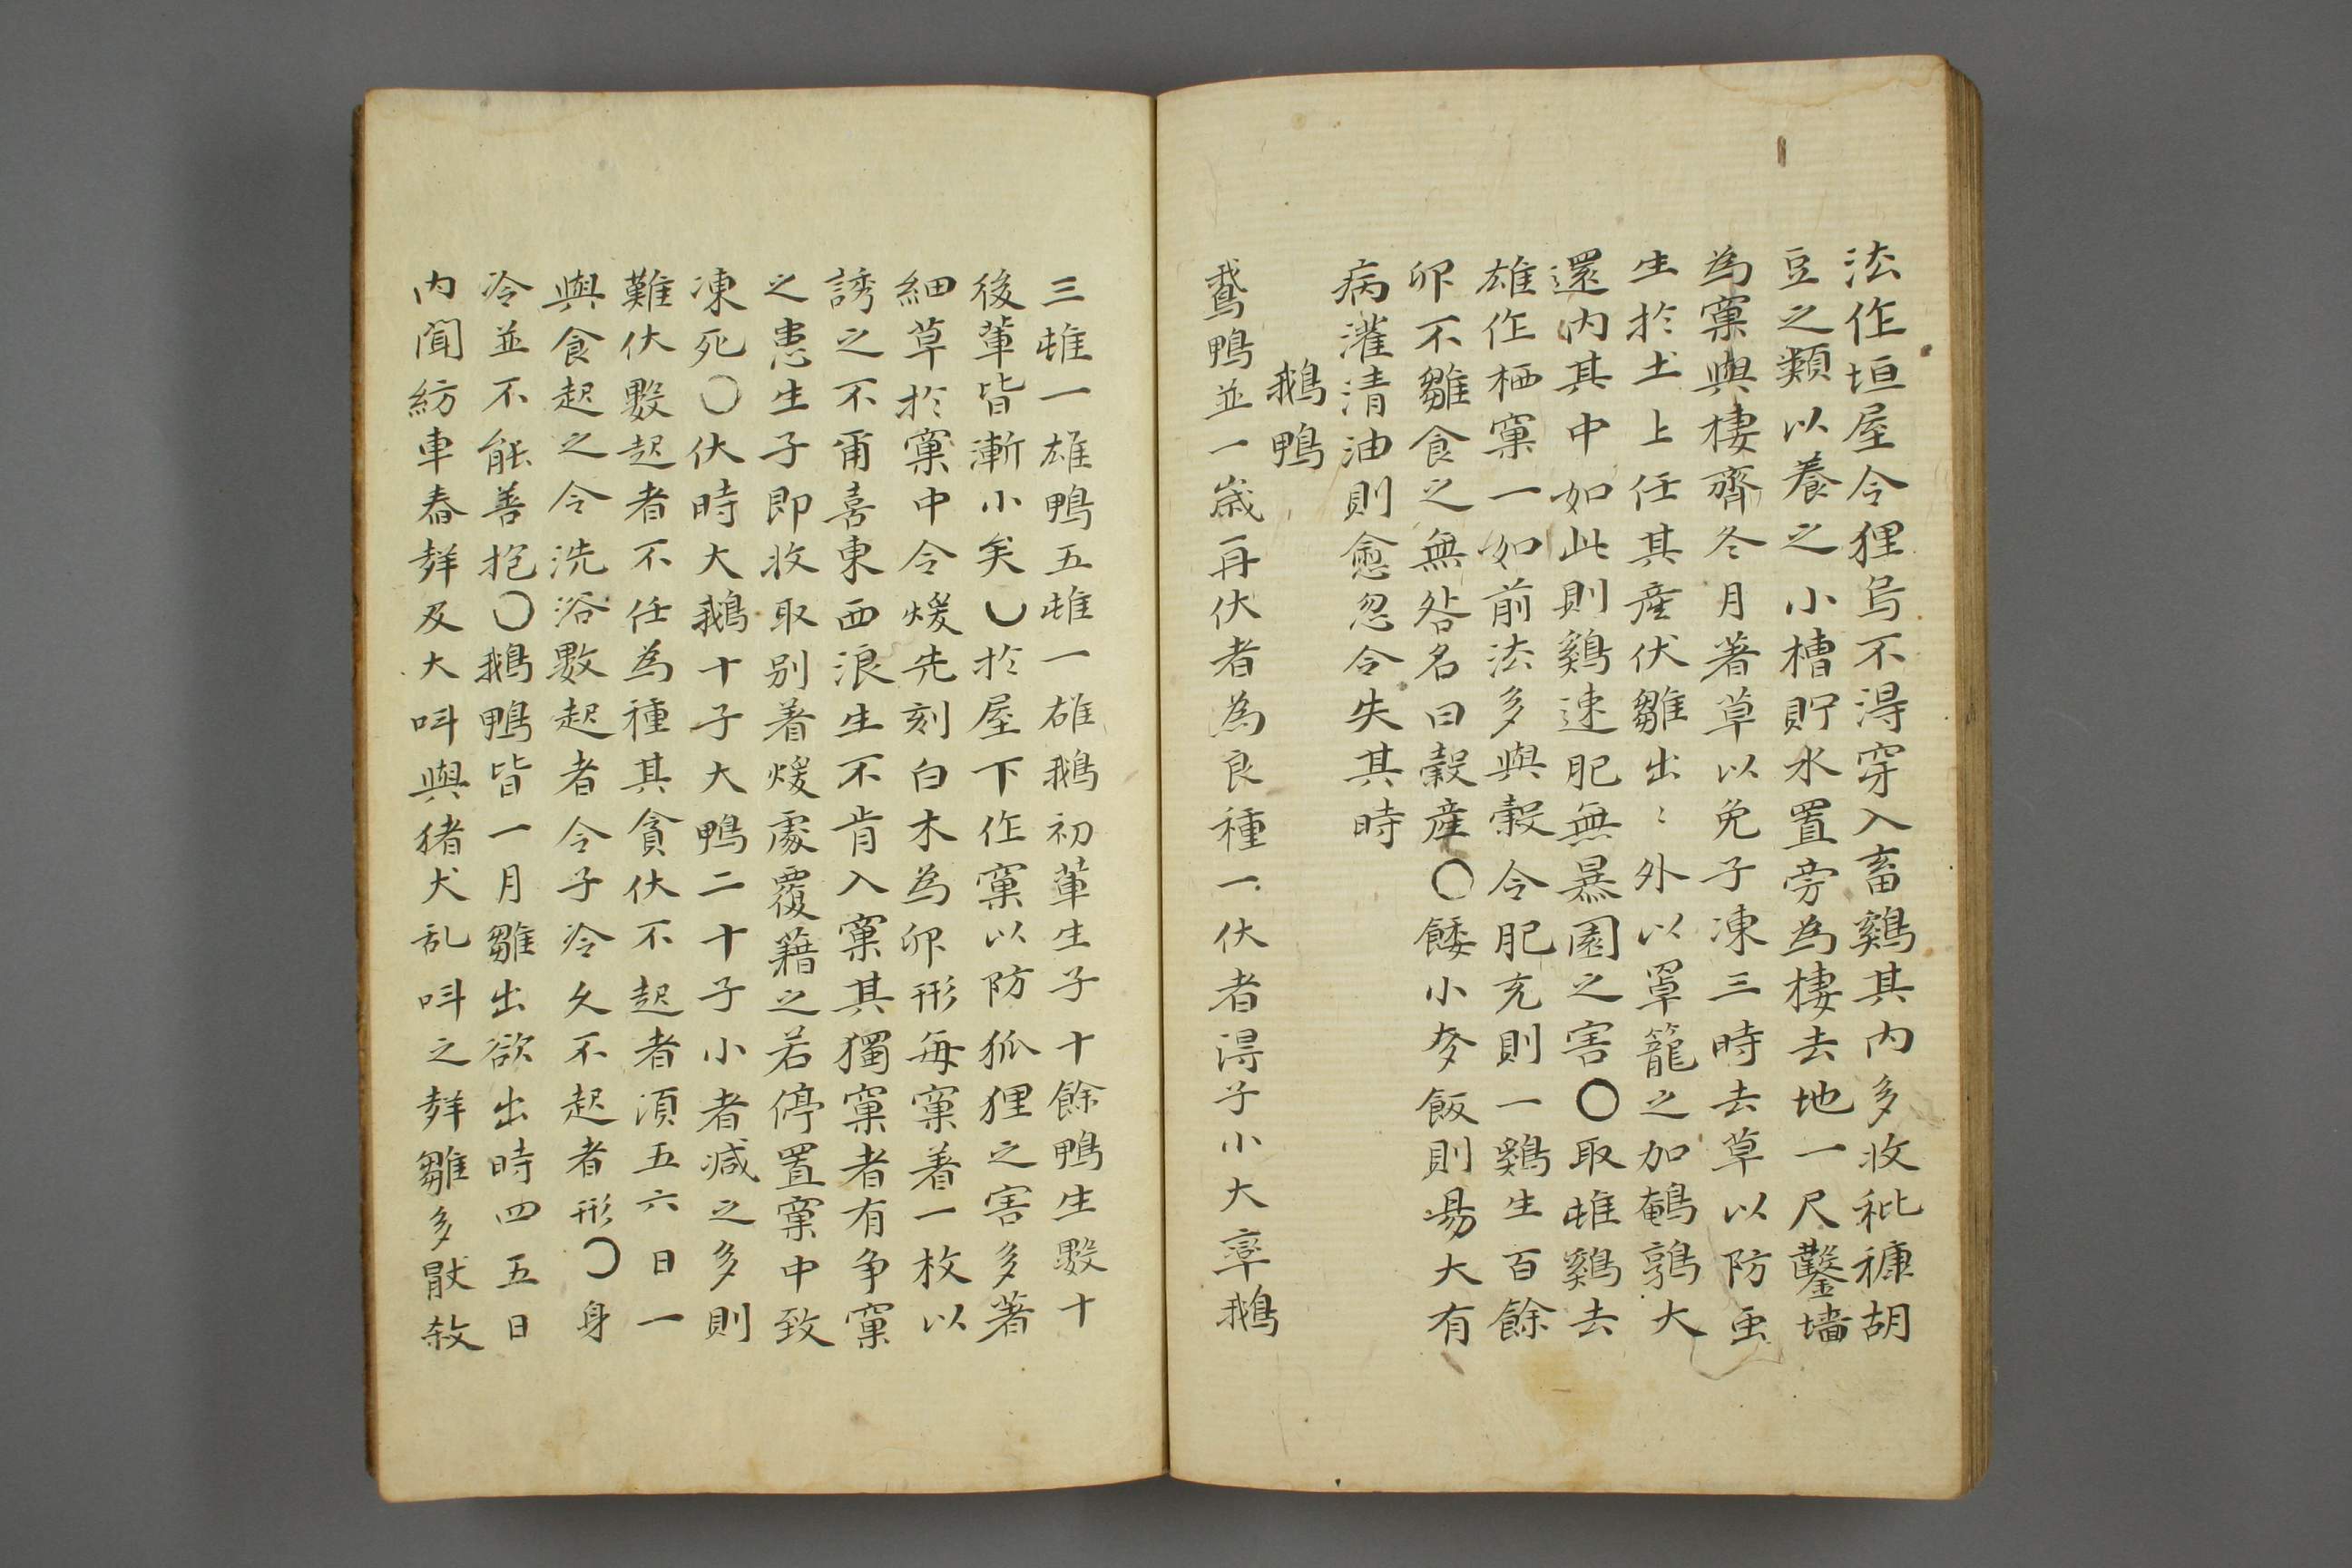 法作垣屋令狸烏不淂穿入畜鷄其内多收秕穅胡
豆之類以養之小槽貯水置旁為棲去地一尺鑿墻
為窠與棲齊冬月著草以免子凍三時去草以防虫
生於土上任其産伏雛出〻外以罩籠之加鵪鶉大
還内其中如此則鷄速肥無暴園之害〇取雌鷄去
雄作栖窠一如前法多與穀令肥充則一鷄生百餘
卵不雛食之無咎名曰穀産〇餧小麥飯則易大有
病灌清油則愈忽令失其時
鵝鴨
鵞鴨並一歲再伏者為良種一伏者淂子小大率鵝
三雌一雄鴨五雌一雄鵝初軰生子十餘鴨生數十
後軰皆漸小矣〇於屋下作窠以防狐狸之害多著
細草於窠中令煖先刻白木為卵形每窠着一枚以
誘之不甭喜東西浪生不肯入窠其獨窠者有争窠
之患生子即收取别着煖處覆藉之若停置窠中致
凍死〇伏時大鵝十子大鴨二十子小者减之多則
難伏數起者不任為種其貪伏不起者湏五六日一
與食起之令洗浴數起者令子冷久不起者形〇身
冷並不能善抱〇鵝鴨皆一月雛出欲出時四五日
内聞紡車舂㪯及大呌與猪犬乱呌之㪯雛多𣧑殺